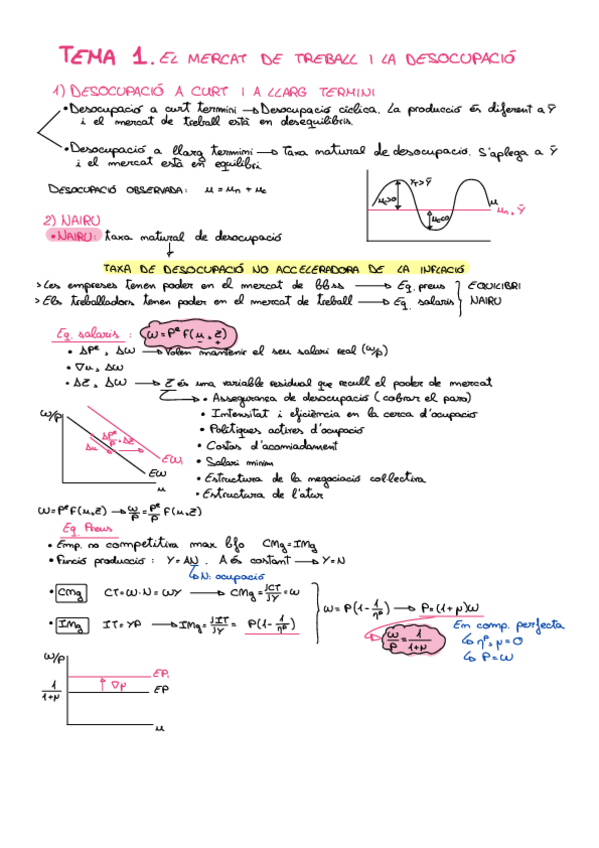 TEMA 1. EL MERCAT DE TREBALL I LA DESOCUPACIÓ
1) DESOCUPACIÓ A CURT I A LLARG TERMINI
• Desocupació a curt termini → Desocupació cíclica. La producció és diferent a Ȳ
i el mercat de treball està en desequilibris.
• Desocupació a llarg termini → Taxa natural de desocupació. S'aplega a Ȳ
i el mercat està en equilibri.
DESOCUPACIÓ OBSERVADA: u = un + uc
YT > Ȳ
uc>0
uc<0
u
un, Ȳ
2) NAIRU
• NAIRU: taxa natural de desocupació
↓
TAXA DE DESOCUPACIÓ NO ACCELERADORA DE LA INFLACIÓ
> Les empreses tenen poder en el mercat de bb.ss → Eq. preus } EQUILIBRI
> Els treballadors tenen poder en el mercat de treball → Eq. salaris } NAIRU
Eq. salaris: W = Pᵉ F(u, Z)
+
• ΔPᵉ, ΔW → Volen mantenir el seu salari real (W/P)
• ∇u, ΔW
• ΔZ, ΔW → Z és una variable residual que recull el poder de mercat
• Assegurança de desocupació (cobrar el paro)
• Intensitat i eficiència en la cerca d'ocupació
• Polítiques actives d'ocupació
• Costos d'acomiadament
• Salari mínim
• Estructura de la negociació col·lectiva
• Estructura de l'atur
W/P
Δu
ΔPᵉ/P, ΔZ
EW₁
EW
u
W = Pᵉ F(u, Z) → W/P = Pᵉ/P F(u, Z)
Eq. Preus
• Emp. no competitiva max bfo CMg = IMg
• Funció producció: Y = AN. A és constant → Y = N
↳ N: ocupació
• CMg CT = W·N = WY → CMg = JCT/JY = W
• IMg IT = YP → IMg = JIT/JY = P(1 - 1/ηᵖ)
W = P(1 - 1/ηᵖ) → P = (1+μ)W
↳ W/P = 1/(1+μ)
Em comp. perfecta
↳ ηᵖ, μ = 0
↳ P = W
W/P
1/(1+μ)
↑ ∇μ
EP₁
EP
u